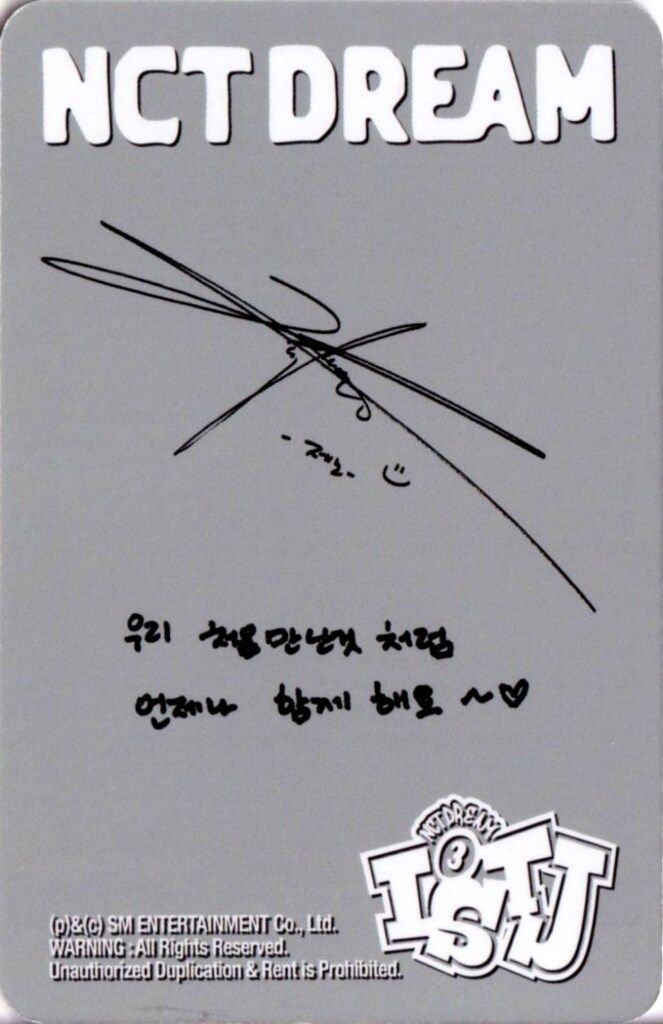 NCT DREAM
-제노-
우리 처음 만난것 처럼
언제나 함께 해요 ~♡
NCT DREAM
3
ISTJ
(p)&(c) SM ENTERTAINMENT Co., Ltd.
WARNING : All Rights Reserved.
Unauthorized Duplication & Rent is Prohibited.